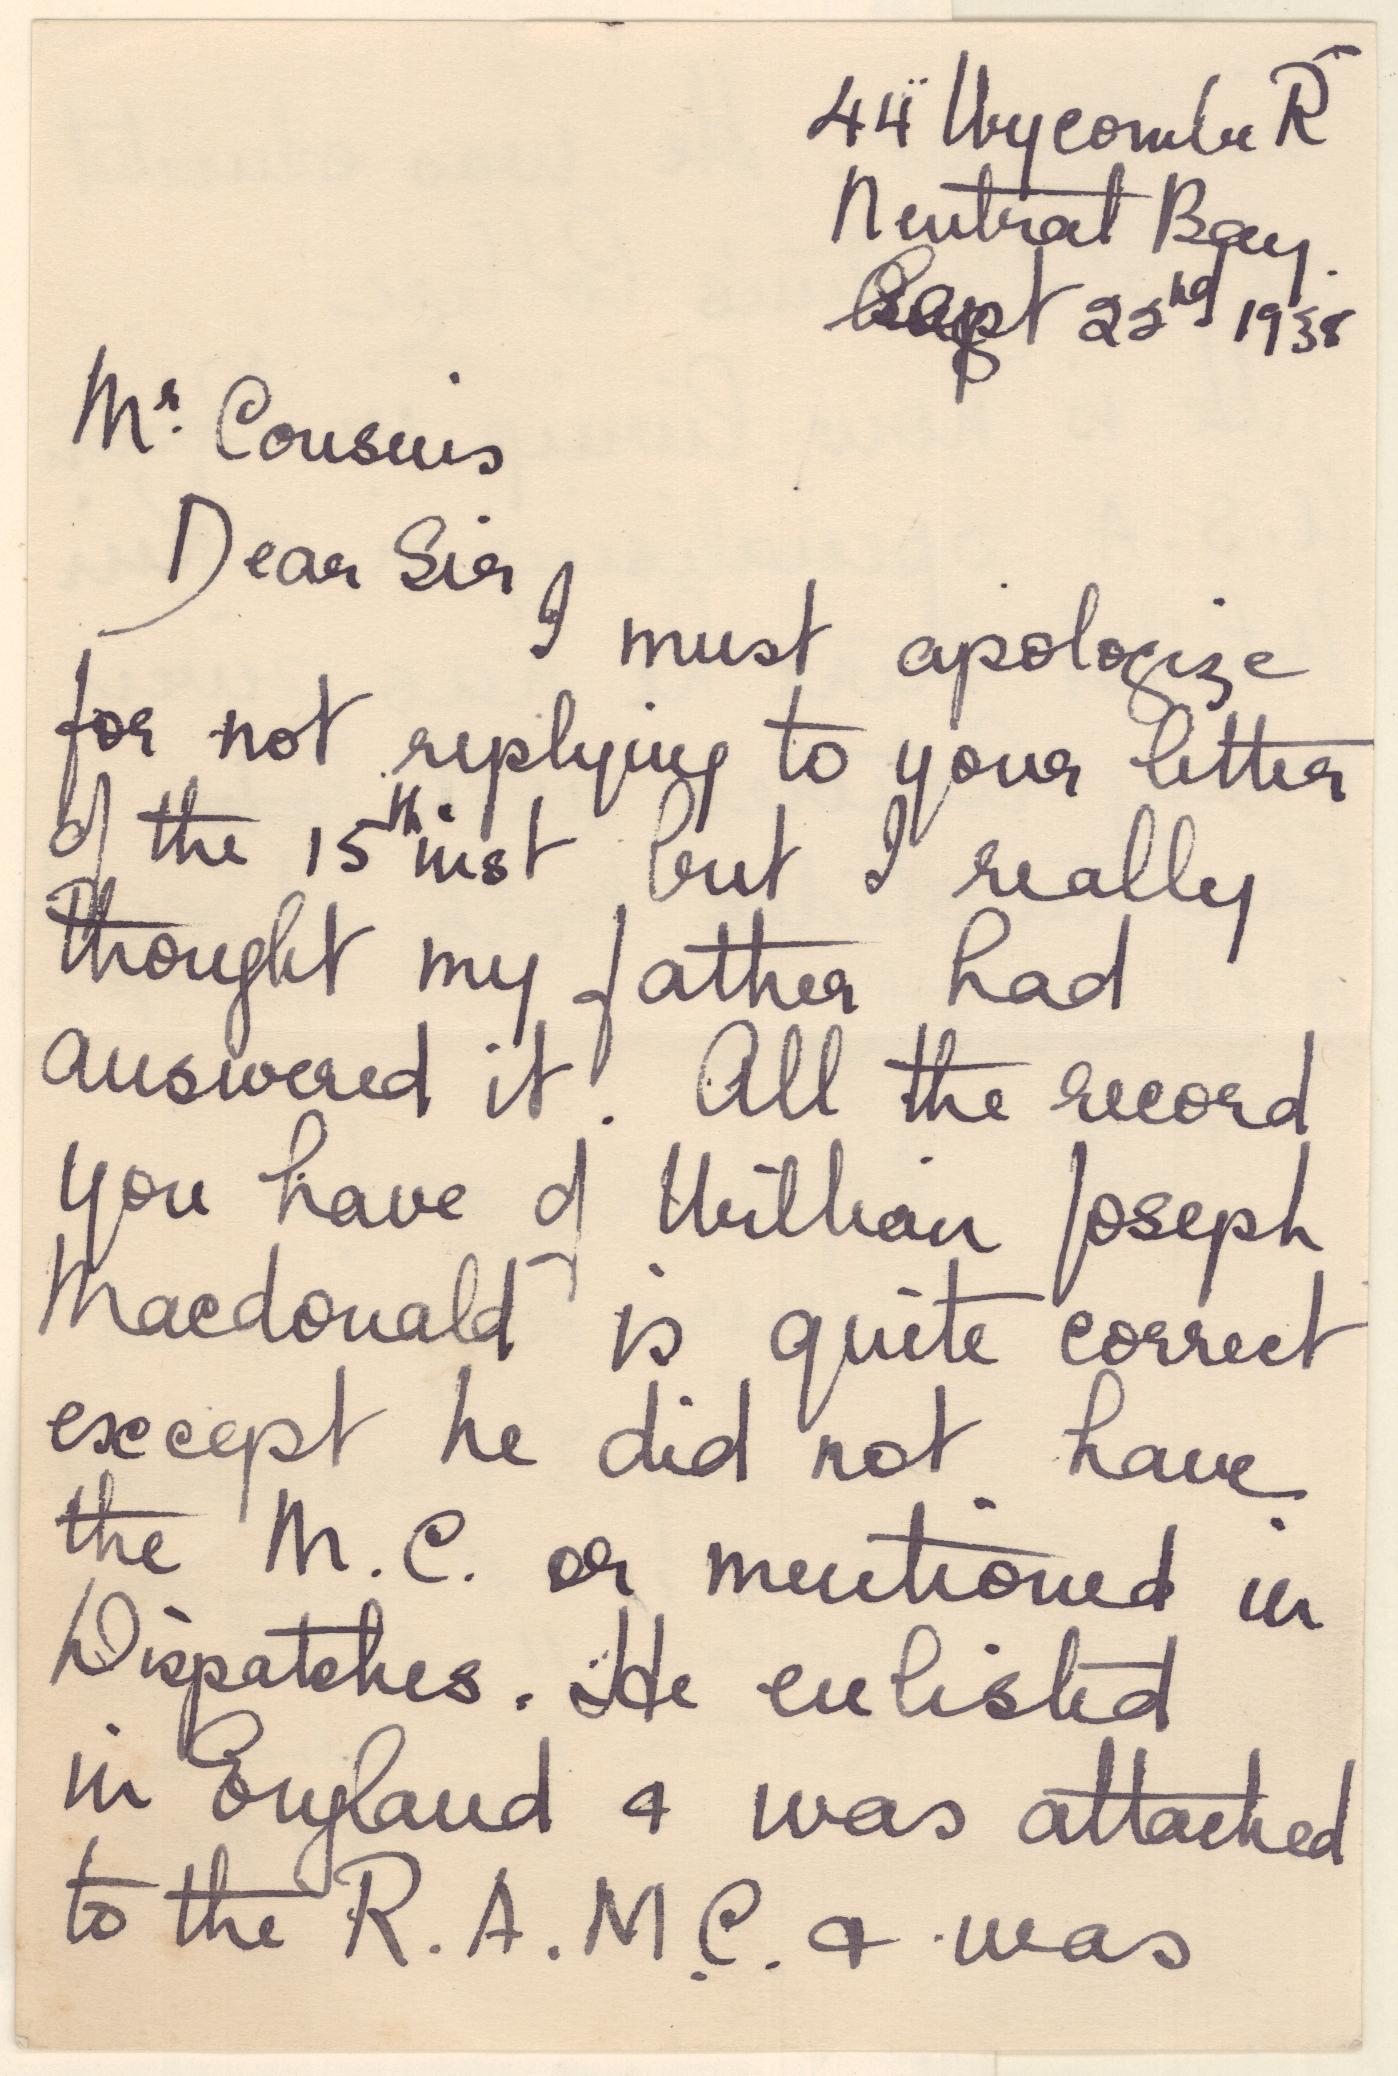 44 Wycombe Rd
Neutral Bay.
Sept 22nd 1938
Mr. Cousins
Dear Sir,
I must apologize
for not replying to your letter
of the 15th inst but I really
thought my father had
answered it. All the record
you have of William Joseph
Macdonald is quite correct
except he did not have
the M.C. or mentioned in
Dispatches. He enlisted
in England & was attached
to the R.A.M.C. & was